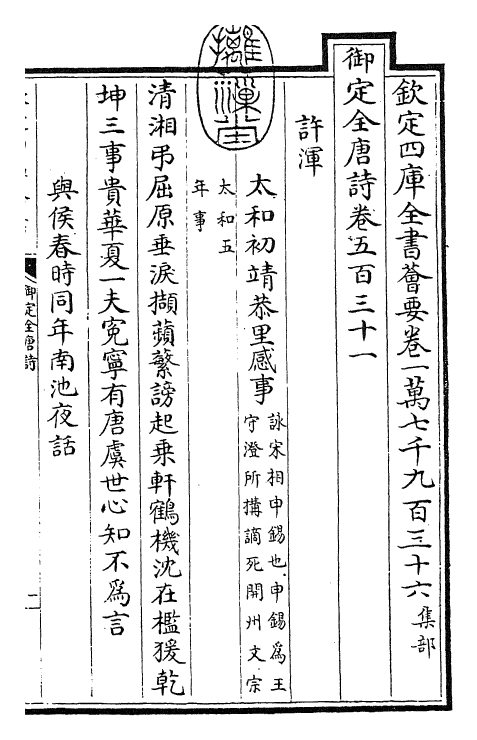 欽定四庫全書薈要卷一萬七千九百三十六 集部
御定全唐詩卷五百三十一
許渾
太和初靖恭里感事 詠宋相申錫也申錫為王
守澄所搆謫死開州文宗
太和五
年事
清湘弔屈原垂淚擷蘋蘩謗起乗軒鶴機沈在檻猨乾
坤三事貴華夏一夫寃寧有唐虞世心知不為言
與侯春時同年南池夜話
御定全唐詩